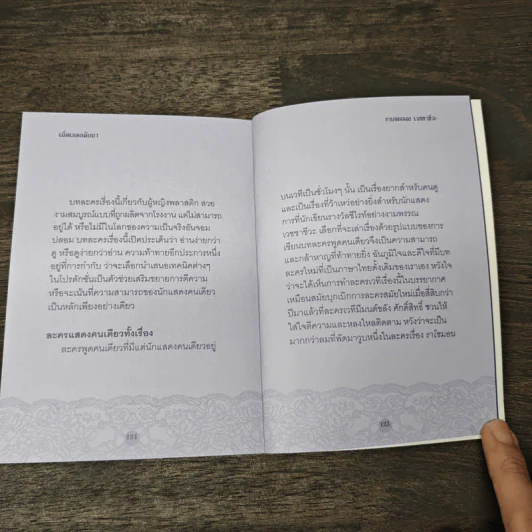 เมื่อบอดลัดยา
บทละครเรื่องนี้เกี่ยวกับผู้หญิงพลาสติก สวย
งามสมบูรณ์แบบที่ถูกผลิตจากโรงงาน แต่ไม่สามารถ
อยู่ได้ หรือไม่มีในโลกของความเป็นจริงอันจอม
ปลอม บทละครเรื่องนี้เปิดประเด็นว่า อ่านง่ายกว่า
ดู หรือดูง่ายกว่าอ่าน ความท้าทายอีกประการหนึ่ง
อยู่ที่การกำกับ ว่าจะเลือกนำเสนอเทคนิคต่างๆ
ในโปรดักชั่นเป็นตัวช่วยเสริมขยายการตีความ
หรือจะเน้นที่ความสามารถของนักแสดงคนเดียว
เป็นหลักเพียงอย่างเดียว
ละครแสดงคนเดียวทั้งเรื่อง
ละครพูดคนเดียวที่มีแต่นักแสดงคนเดียวอยู่
งามพรรณ เวชชาชีวะ
บนเวทีเป็นชั่วโมงๆ นั้น เป็นเรื่องยากสำหรับคนดู
และเป็นเรื่องที่ว้าเหว่อย่างยิ่งสำหรับนักแสดง
การที่นักเขียนรางวัลซีไรท์อย่างงามพรรณ
เวชชาชีวะ เลือกที่จะเล่าเรื่องด้วยรูปแบบของการ
เขียนบทละครพูดคนเดียวจึงเป็นความสามารถ
และกล้าหาญที่ท้าทายยิ่ง อันภูมิใจและดีใจที่มีบท
ละครใหม่ที่เป็นภาษาไทยดั้งเดิมของเราเอง หวังใจ
ว่าจะได้เห็นการทำละครเวทีเรื่องนี้ในบรรยากาศ
เหมือนสมัยบุกเบิกการละครสมัยใหม่เมื่อสี่สิบกว่า
ปีมาแล้วที่ละครเวทีมีมนต์ขลัง ศักดิ์สิทธิ์ ชวนให้
ใส่ใจตีความและหลงใหลติดตาม หวังว่าจะเป็น
มากกว่าลมที่พัดมาวูบหนึ่งในละครเรื่อง ราโชมอน